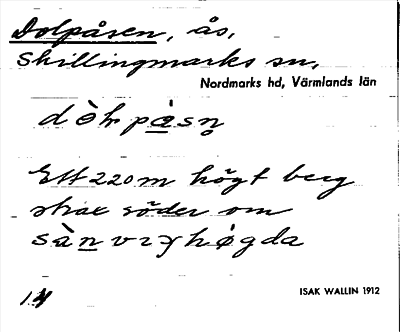 Dolpåsen, ås,
Skillingmarks sn,
Nordmarks hd, Värmlands län
Ett 220 m högt berg
strax söder om
ISAK WALLIN 1912